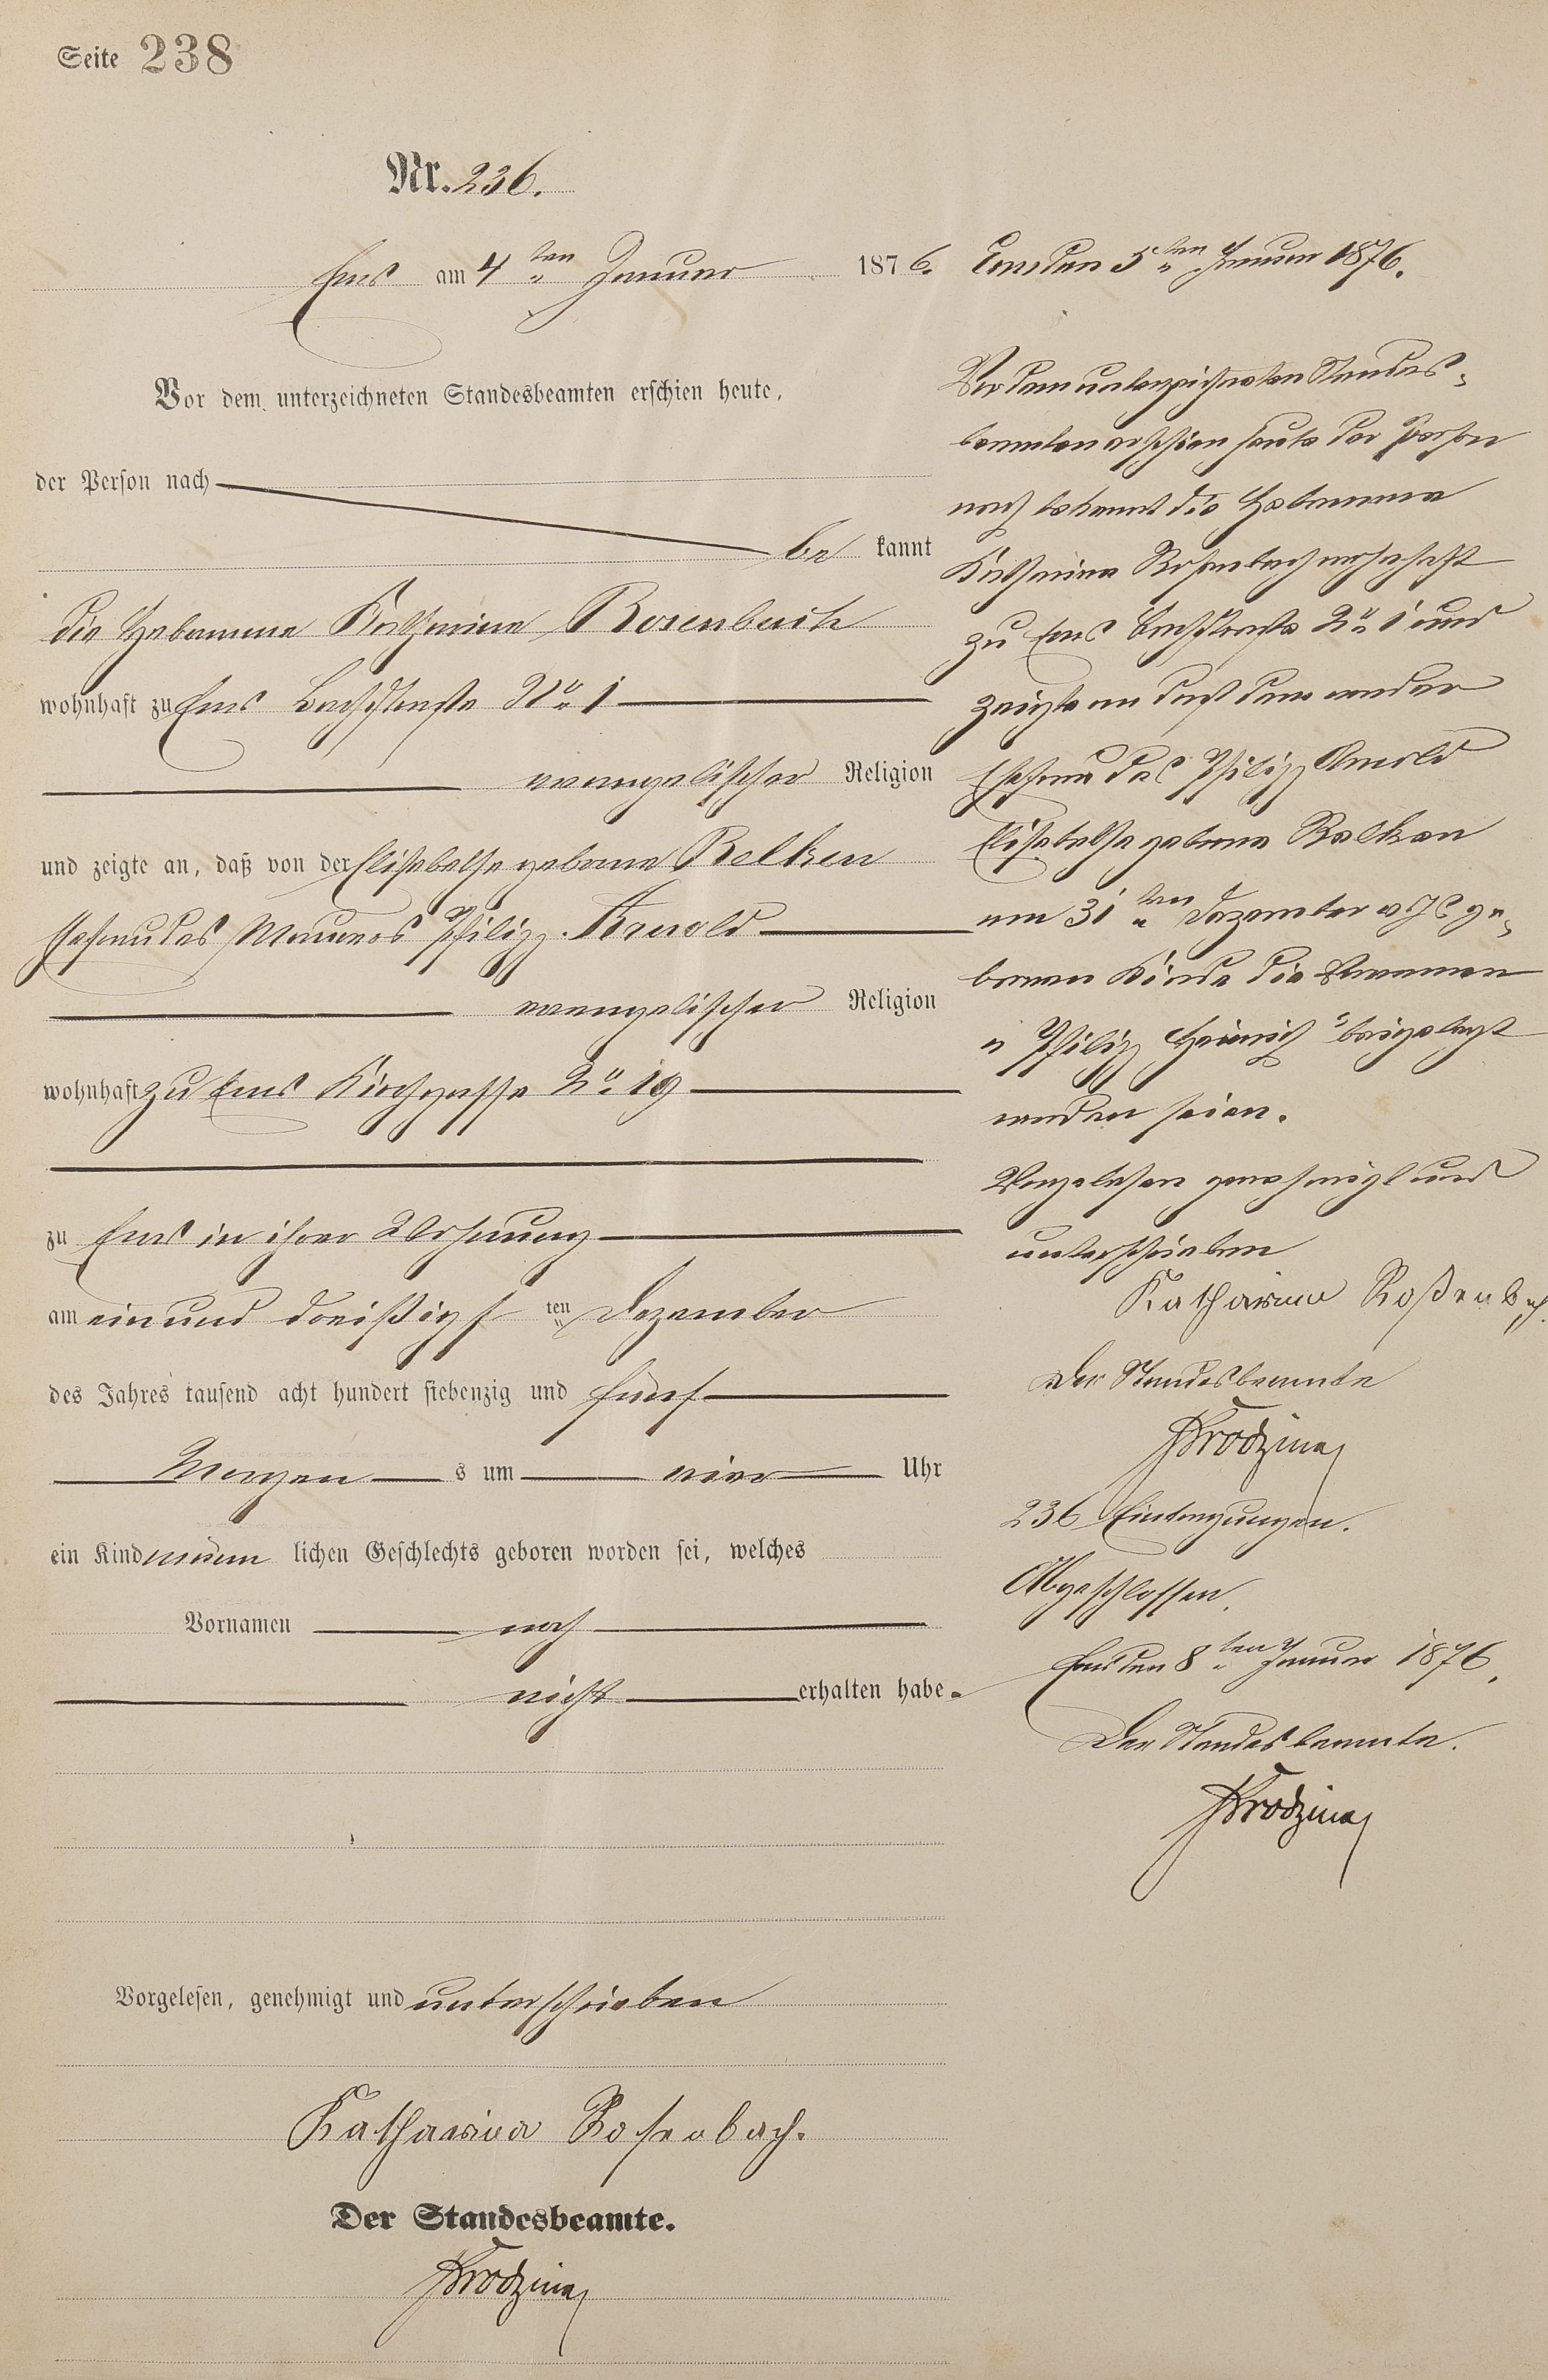 Seite 238
Nr. 236.
Ems am 4ten Januar 1876.
Vor dem unterzeichneten Standesbeamten erschien heute,
der Person nach
bekannt
die Hebamme Katharina Rosenbach
wohnhaft zu Ems Bachstraße No 1
evangelischer Religion
und zeigte an, daß von der Elisabethe geborne Balken
Ehefrau des Maurers Philipp Arnold
evangelischer Religion
wohnhaft zu Ems Kirchgasse No 19
zu Ems in ihrer Wohnung
am ein und dreißigsten Dezember
des Jahres tausend acht hundert siebenzig und fünf
Morgens um vier Uhr
ein Kind männlichen Geschlechts geboren worden sei, welches
Vornamen noch
nicht erhalten habe.
Vorgelesen, genehmigt und unterschrieben
Katharina Rosenbach.
Der Standesbeamte.
Ems den 5ten Januar 1876.
Vor dem unterzeichneten Standes-
beamten erschien heute der Person
nach bekannt die Hebamme
Katharina Rosenbach wohnhaft
zu Ems Bachstraße No 1 und
zeigte an daß dem von der
Ehefrau des Philipp Arnold
Elisabethe geborne Balken
am 31ten Dezember v Js ge-
bornen Kinde die Vornamen
„Philipp Heinrich“ beigelegt
worden seien.
Vorgelesen genehmigt und
unterschrieben
Katharina Roßenbach.
Der Standesbeamte
236 Eintragungen.
Abgeschlossen.
Ems den 8ten Januar 1876.
Der Standesbeamte.